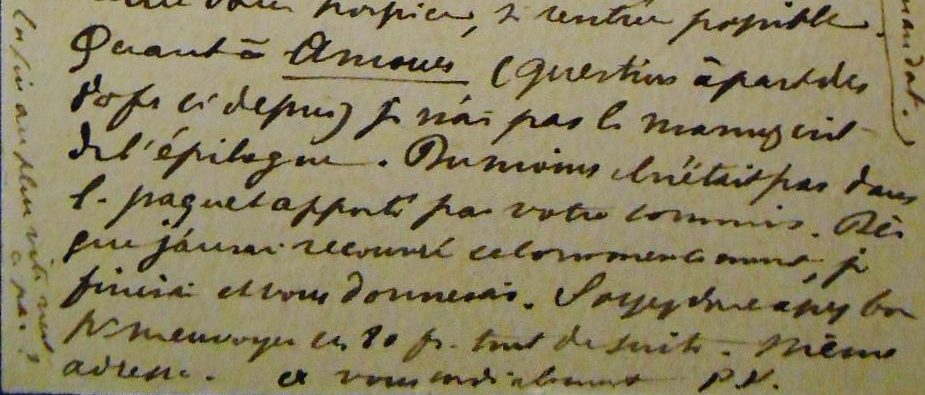 hospice, si rentrée possible.
Quant à Amour (question à part des
ci dessus) je n'ai pas le manuscrit
de l'épilogue. Du moins il n'était pas dans
le paquet apporté par votre commis. Dès
que j'aurai recouvré ce commencement, je
finirai et vous donnerai. Soyez donc assez bon
pr m'envoyer ces 80 fr. tout de suite. Même
adresse. à vous cordialement P.V.
mandat.)